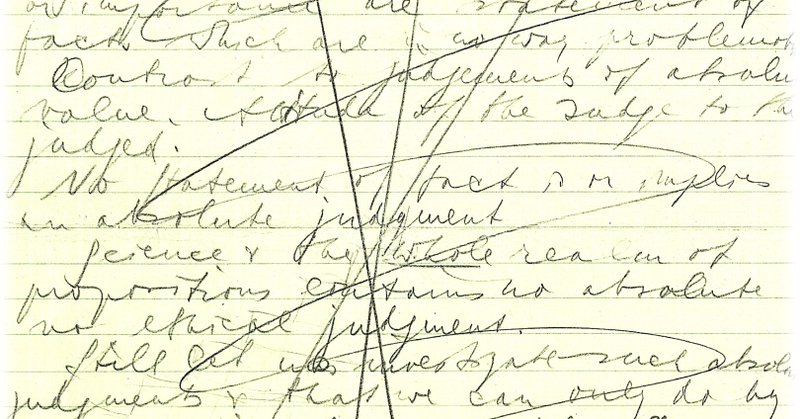 or importance are statement of
fact which are in no way problemat
Contrast to judgements of absolu
value. Attitude of the Judge to the
judged.
No statement of fact is or implies
an absolute judgment
Science & the whole realm of
propositions contains no absolute
no ethical judgment.
Still let us investigate such absolu
judgments & that we can only do by